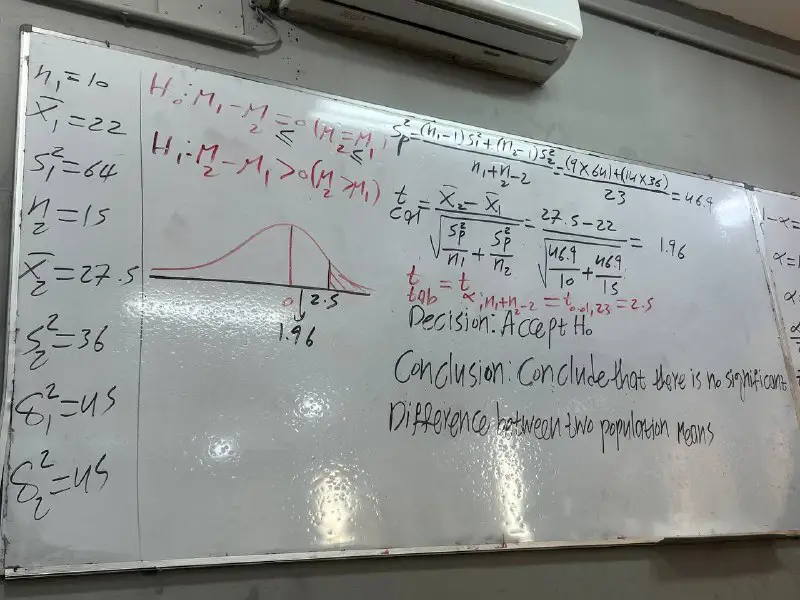 n₁=10
X̄₁=22
S₁²=64
n₂=15
X̄₂=27.5
S₂²=36
δ₁²=45
δ₂²=45
H₀: M₁-M₂=0 (M₂=M₁)
≤ ≤
H₁: M₂-M₁>0 (M₂>M₁)
0 2.5
1.96
Sp²=(n₁-1)S₁²+(n₂-1)S₂²/n₁+n₂-2=(9×64)+(14×36)/23=46.9
t cal=X̄₂-X̄₁/√(Sp²/n₁+Sp²/n₂)=27.5-22/√(46.9/10+46.9/15)=1.96
t tab=t α;n₁+n₂-2=t 0.01,23=2.5
Decision: Accept H₀
Conclusion: Conclude that there is no significant
Difference between two population Means
1-α=
α=
α